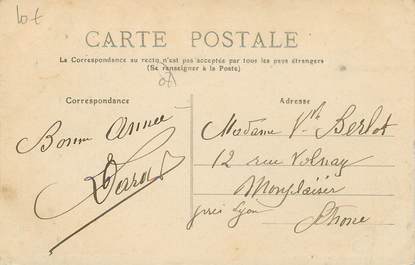 CARTE POSTALE
La Correspondance au recto n'est pas acceptée par tous les pays étrangers
(Se renseigner à la Poste)
Correspondance
Adresse
Bonne Année
Madame Vve Berlot
12 rue Volnay
Monplaisir
près Lyon
Rhône